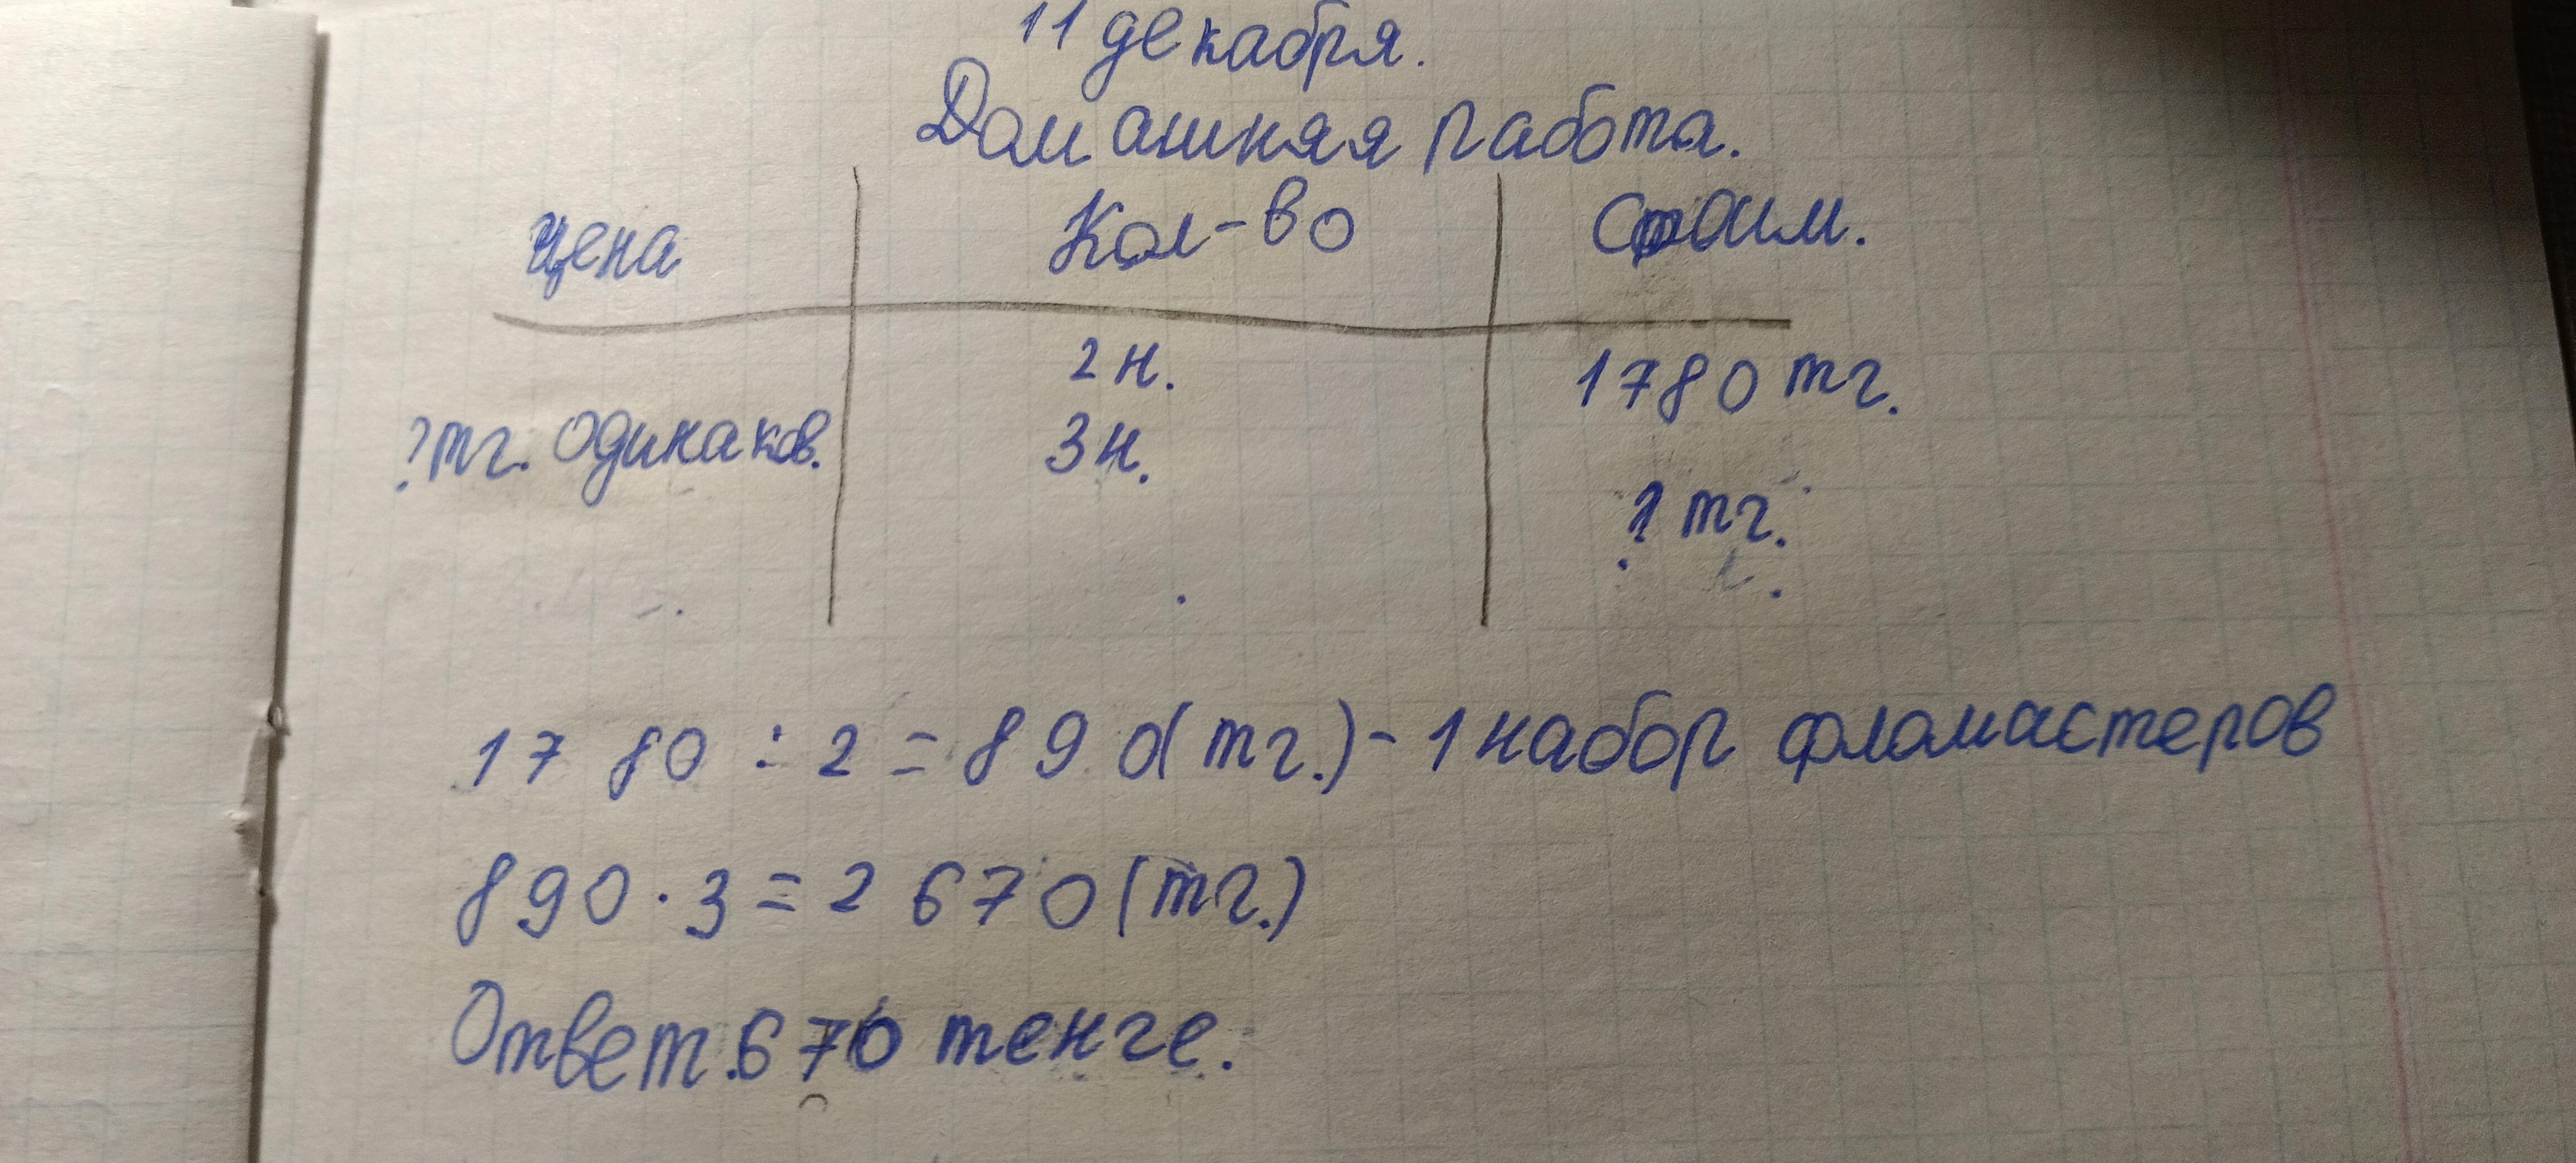 11 декабря.
Домашняя работа.
цена Кол-во Стоим.
2 н. 1780 тг.
? тг. одинаков. 3 н.
? тг.
1780 : 2 = 890 (тг.) - 1 набор фломастеров
890 · 3 = 2670 (тг.)
Ответ. 670 тенге.